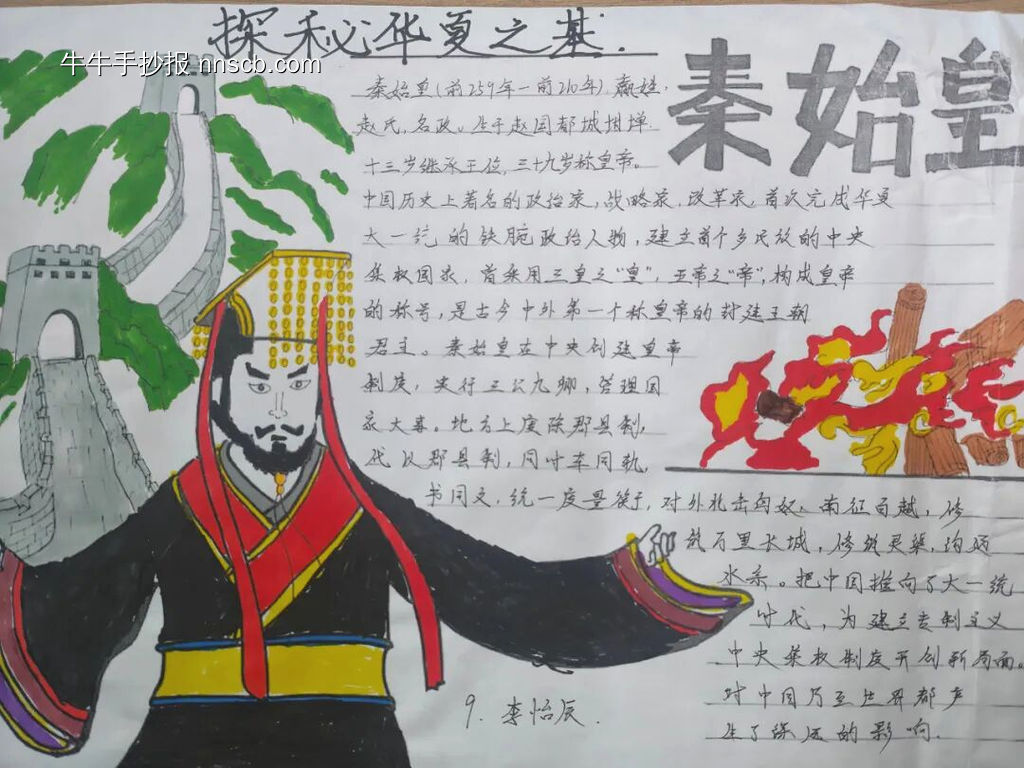 探秘华夏之基.
牛牛手抄报 nnscb.com
秦始皇
秦始皇(前259年一前210年).嬴姓,
赵氏,名政。生于赵国都城邯郸.
十三岁继承王位,三十九岁称皇帝。
中国历史上著名的政治家,战略家.改革家,首次完成华夏
大一统的铁腕政治人物,建立首个多民族的中央
集权国家,首采用三皇之“皇”,五帝之“帝”,构成皇帝
的称号,是古今中外第一个称皇帝的封建王朝
君主。秦始皇在中央创建皇帝
制度,实行三公九卿,管理国
家大事。地方上废除郡县制,
代以郡县制,同时车同轨,
书同文.统一度量衡,对外北击匈奴.南征百越,修
筑万里长城,修筑灵渠.沟通
水系。把中国推向了大一统
时代,为建立专制主义
中央集权制度开创新局面。
对中国乃至世界都产
生了深远的影响.
9.李怡辰.